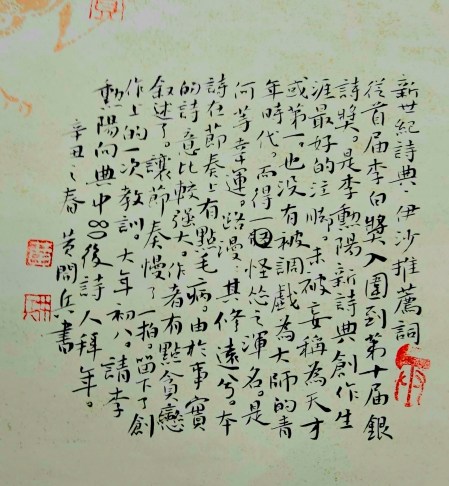 新世紀詩典，伊沙推薦詞
從首届李白獎入圍到第十届銀
詩獎。是李勲陽新詩典創作生
涯最好的注順。未被妄稱為天才
或第一。也没有被調戲為大師的青
年時代，而得一個怪怂之渾名。是
何等幸運。路漫其修遠兮。本
詩在節奏上有點毛病。由於事實
的詩意比較强大。作者有點貪戀
叙述了。讓節奏慢了一拍。留下了創
作上的一次教訓。大年初八。請李
勲陽向典中80後詩人拜年。
辛丑之春 黄開兵書